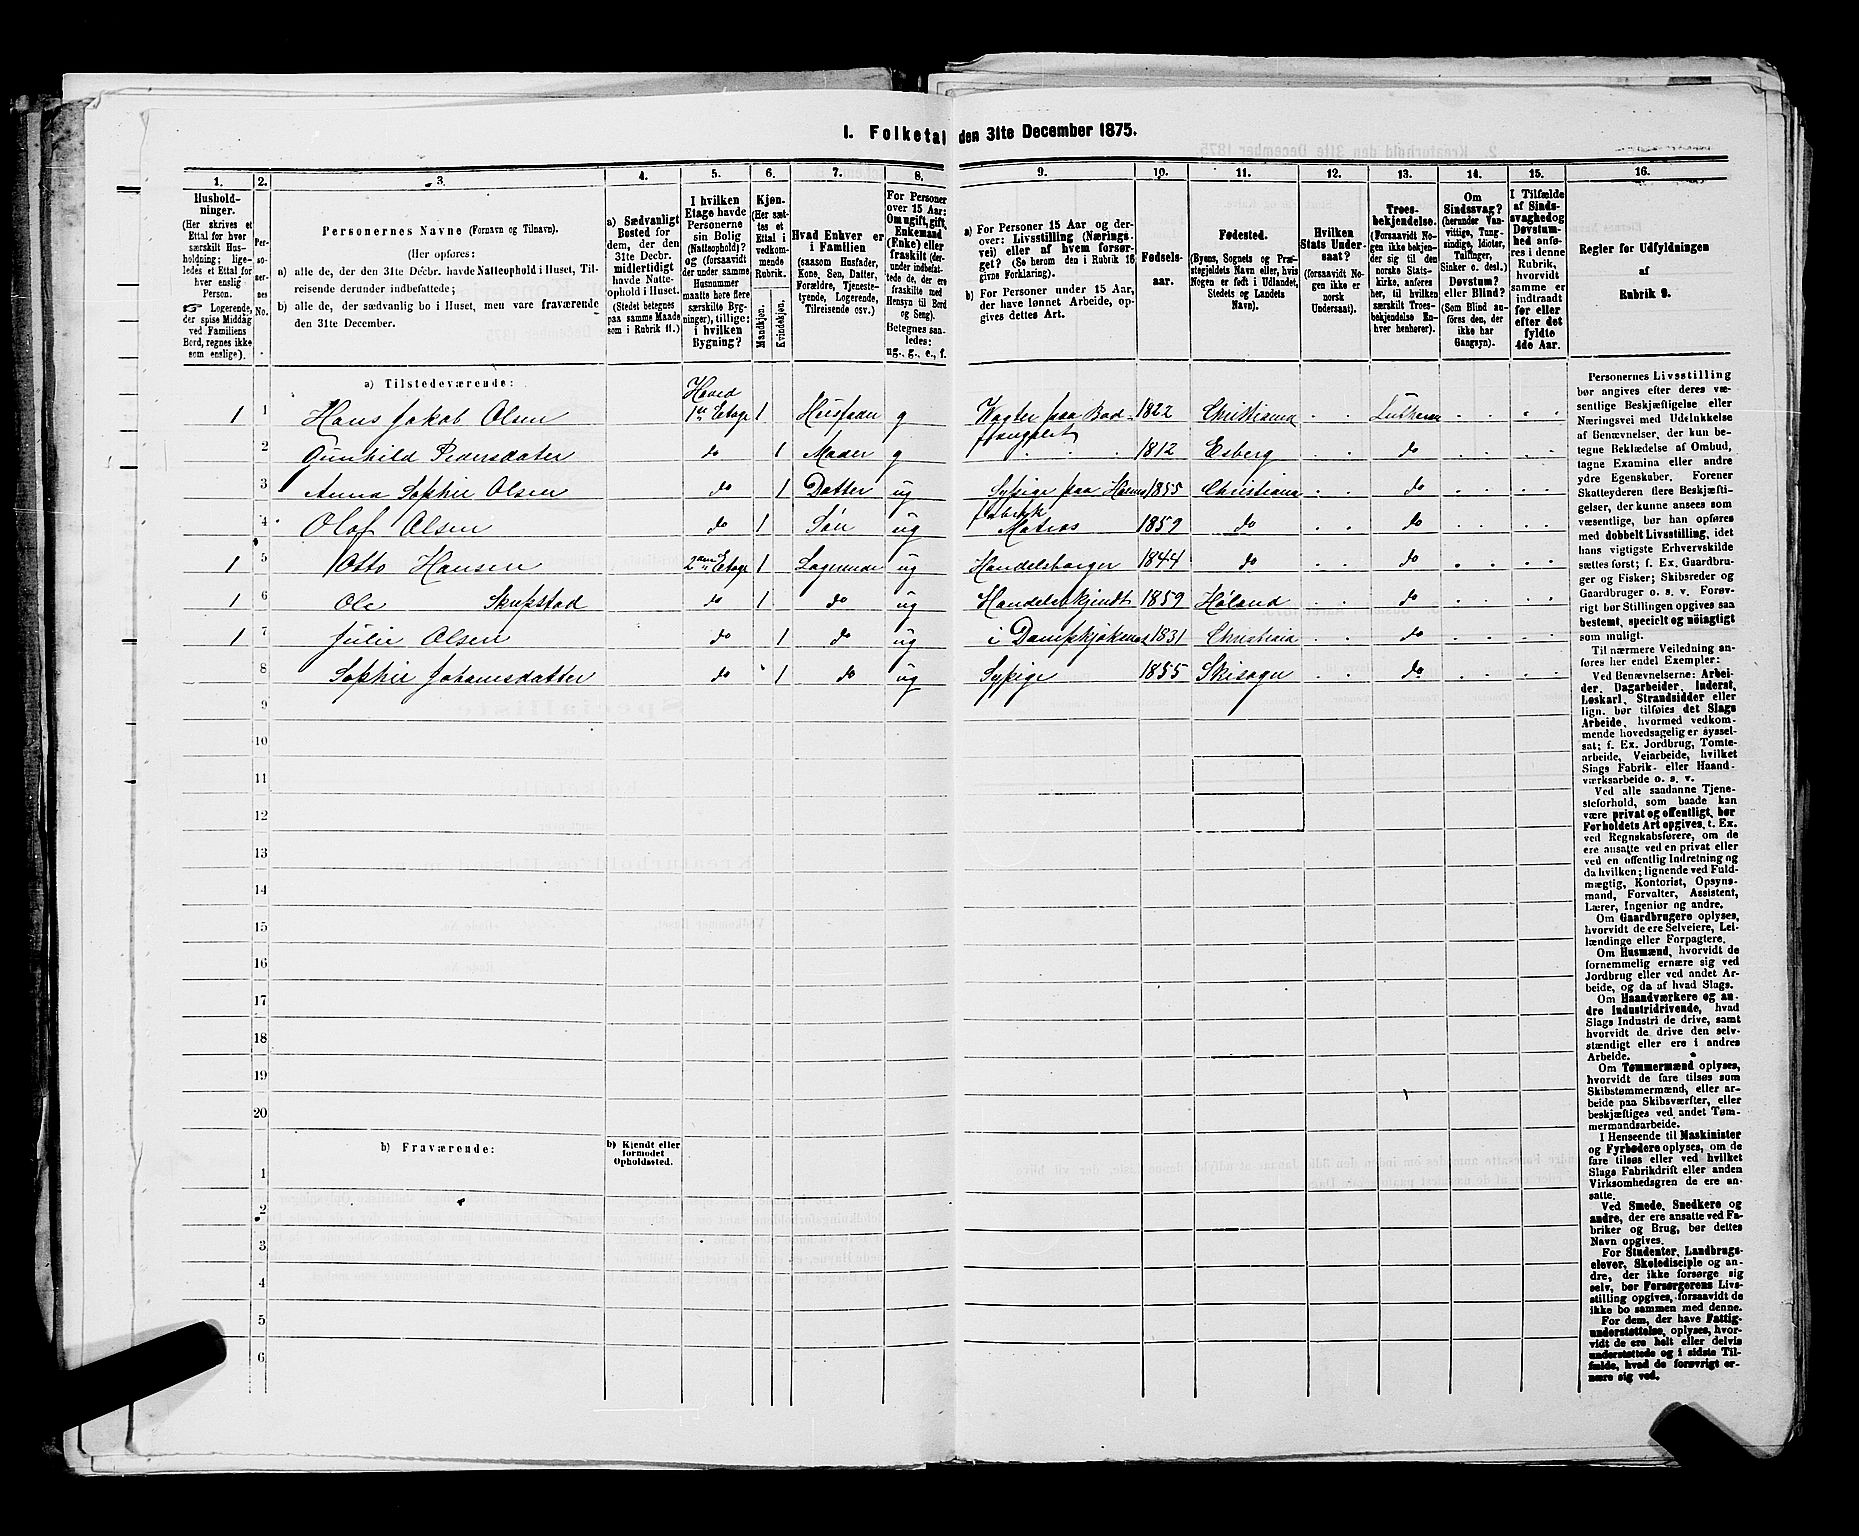 I. Folketal den 31te December 1875.
1. 2. 3. 4. 5. 6. 7. 8. 9. 10. 11. 12. 13. 14. 15. 16.
Husholdninger.
(Her skrives et Ettal for hver særskilt Husholdning; ligeledes et Ettal for hver enslig Person.
☞ Logerende, der spise Middag ved Familiens Bord, regnes ikke som enslige).
Personernes No.
Personernes Navne (Fornavn og Tilnavn).
(Her opføres:
a) alle de, der den 31te Decbr. havde Natteophold i Huset, Tilreisende derunder indbefattede;
b) alle de, der sædvanlig bo i Huset, men vare fraværende den 31te December.
a) Sædvanligt Bosted for dem, der den 31te Decbr. midlertidigt havde Natteophold i Huset. (Stedet betegnes paa samme Maade som i Rubrik 11.)
I hvilken Etage havde Personerne sin Bolig (Natteophold)? og (forsaavidt der under samme Husnummer maatte høre flere særskilte Bygninger), tillige: i hvilken Bygning?
Kjøn. (Her sættes et Ettal i vedkommende Rubrik.
Mandkjøn. Kvindekjøn.
Hvad Enhver er i Familien (saasom Husfader, Kone, Søn, Datter, Forældre, Tjenestetyende, Logerende, Tilreisende osv.)
For Personer over 15 Aar: Om ugift, gift, Enkemand (Enke) eller fraskilt (derunder indbefattede de, der ere fraskilte med Hensyn til Bord og Seng). Betegnes saaledes: ug., g., e., f.
a) For Personer 15 Aar og derover: Livsstilling (Næringsvei) eller af hvem forsørget? (Se herom den i Rubrik 16 givne Forklaring).
b) For Personer under 15 Aar, der have lønnet Arbeide, opgives dettes Art.
Fødselsaar.
Fødested.
(Byens, Sognets og Præstegjeldets Navn eller, hvis Nogen er født i Udlandet, Stedets og Landets Navn).
Hvilken Stats Undersaat? (forsaavidt Nogen ikke er norsk Undersaat).
Troesbekjendelse. (Forsaavidt Nogen ikke bekjender sig til den norske Statskirke, anføres her, til hvilken særskilt Troesbekjendelse Enhver henhører).
Om Sindssvag? (herunder Vanvittige, Tungsindige, Idioter, Tullinger, Sinker o. desl.) Døvstum? eller Blind? (Som Blind anføres den, der ikke har Gangsyn).
I Tilfælde af Sindssvaghed og Døvstumhed anføres i denne Rubrik, hvorvidt samme er indtraadt før eller efter det fyldte 4de Aar.
Regler for Udfyldningen af Rubrik 9.
a) Tilstedeværende:
1 1 Hans Jakob Olsen Hoved 1ste Etage 1 Husfader g Vagter paa Bodsfængslet 1822 Christiania . . Luthersk . . . .
2 Gunhild Pedersdater do 1 Moder g . . . 1812 Esberg . . do . . . .
3 Anna Sophie Olsen do 1 Datter ug Sypige paa fabrik 1855 Christiania . . do . . . .
4 Olaf Olsen do 1 Søn ug Matros 1859 do . . do . . . .
1 5 Otto Hansen 2den Etage 1 Logerende ug Handelsborger 1844 do . . do . . . .
1 6 Ole Skupstad do 1 do ug Handelsbetjendt 1859 Høland . . do . . . .
1 7 Julie Olsen do 1 do ug i Dampkjøkenet 1831 Christiania . . do . . . .
8 Sophie Johannesdatter do 1 do ug Sypige 1855 Skisogn . . do . . . .
9
10
11
12
13
14
15
16
17
18
19
20
b) Fraværende:
b) Kjendt eller formodet Opholdssted.
1
2
3
4
5
6
Personernes Livsstilling
bør angives efter deres væ-
sentlige Beskjæftigelse eller
Næringsvei med Udelukkelse
af Benævnelser, der kun be-
tegne Beklædelse af Ombud,
tagne Examina eller andre
ydre Egenskaber. Forener
Skatteyderen flere Beskjæfti-
gelser, der kunne ansees som
væsentlige, bør han opføres
med dobbelt Livsstilling, idet
hans vigtigste Erhvervskilde
sættes først; f. Ex. Gaardbru-
ger og Fisker; Skibsreder og
Gaardbruger o. s. v. Forøv-
rigt bør Stillingen opgives saa
bestemt, specielt og nöiagtigt
som muligt.
Til nærmere Veiledning an-
føres her endel Exempler:
Ved Benævnelserne: Arbei-
der, Dagarbeider, Inderst,
Løskarl, Strandsidder eller
lign. bør tilføies det Slags
Arbeide, hvormed vedkom-
mende hovedsagelig er syssel-
sat; f. Ex. Jordbrug, Tomte-
arbeide, Veiarbeide, hvilket
Slags Fabrik- eller Haand-
værksarbeide o. s. v.
Ved alle saadanne Tjene-
steforhold, som baade kan
være privat og offentligt, bør
Forholdets Art opgives, t. Ex.
ved Regnskabsførere, om de
ere ansatte ved en privat eller
ved en offentlig Indretning og
da hvilken; lignende ved Fuld-
mægtig, Kontorist, Opsyns-
mand, Forvalter, Assistent,
Lærer, Ingeniør og andre.
Om Gaardbrugere oplyses,
hvorvidt de ere Selveiere, Lei-
lændinge eller Forpagtere.
Om Husmænd, hvorvidt de
fornemmelig ernære sig ved
Jordbrug eller ved andet Ar-
beide, og da af hvad Slags.
Om Haandværkere og an-
dre Industridrivende, hvad
Slags Industri de drive, samt
hvorvidt de drive den selv-
stændigt eller ere i andres
Arbeide.
Om Tømmermænd oplyses,
hvorvidt de fare tilsøs som
Skibstømmermænd, eller ar-
beide paa Skibsværfter, eller
beskjæftiges ved andet Tøm-
mermandsarbeide.
I Henseende til Maskinister
og Fyrbødere oplyses, om de
fare tilsøs eller ved hvilket
Slags Fabrikdrift eller anden
Virksomhedsgren de ere an-
satte.
Ved Smede, Snedkere og
andre, der ere ansatte ved Fa-
briker og Brug, bør dettes
Navn opgives.
For Studenter, Landbrugs-
elever, Skoledisciple og an-
dre, der ikke forsørge sig
selv, bør Forsørgerens Livs-
stilling opgives, forsaavidt de
ikke bo sammen med denne.
For dem, der have Fattig-
understøttelse, oplyses, hvor-
vidt de ere helt eller delvis
understøttede og i sidste Til-
fælde, hvad de forøvrigt er-
nære sig ved.